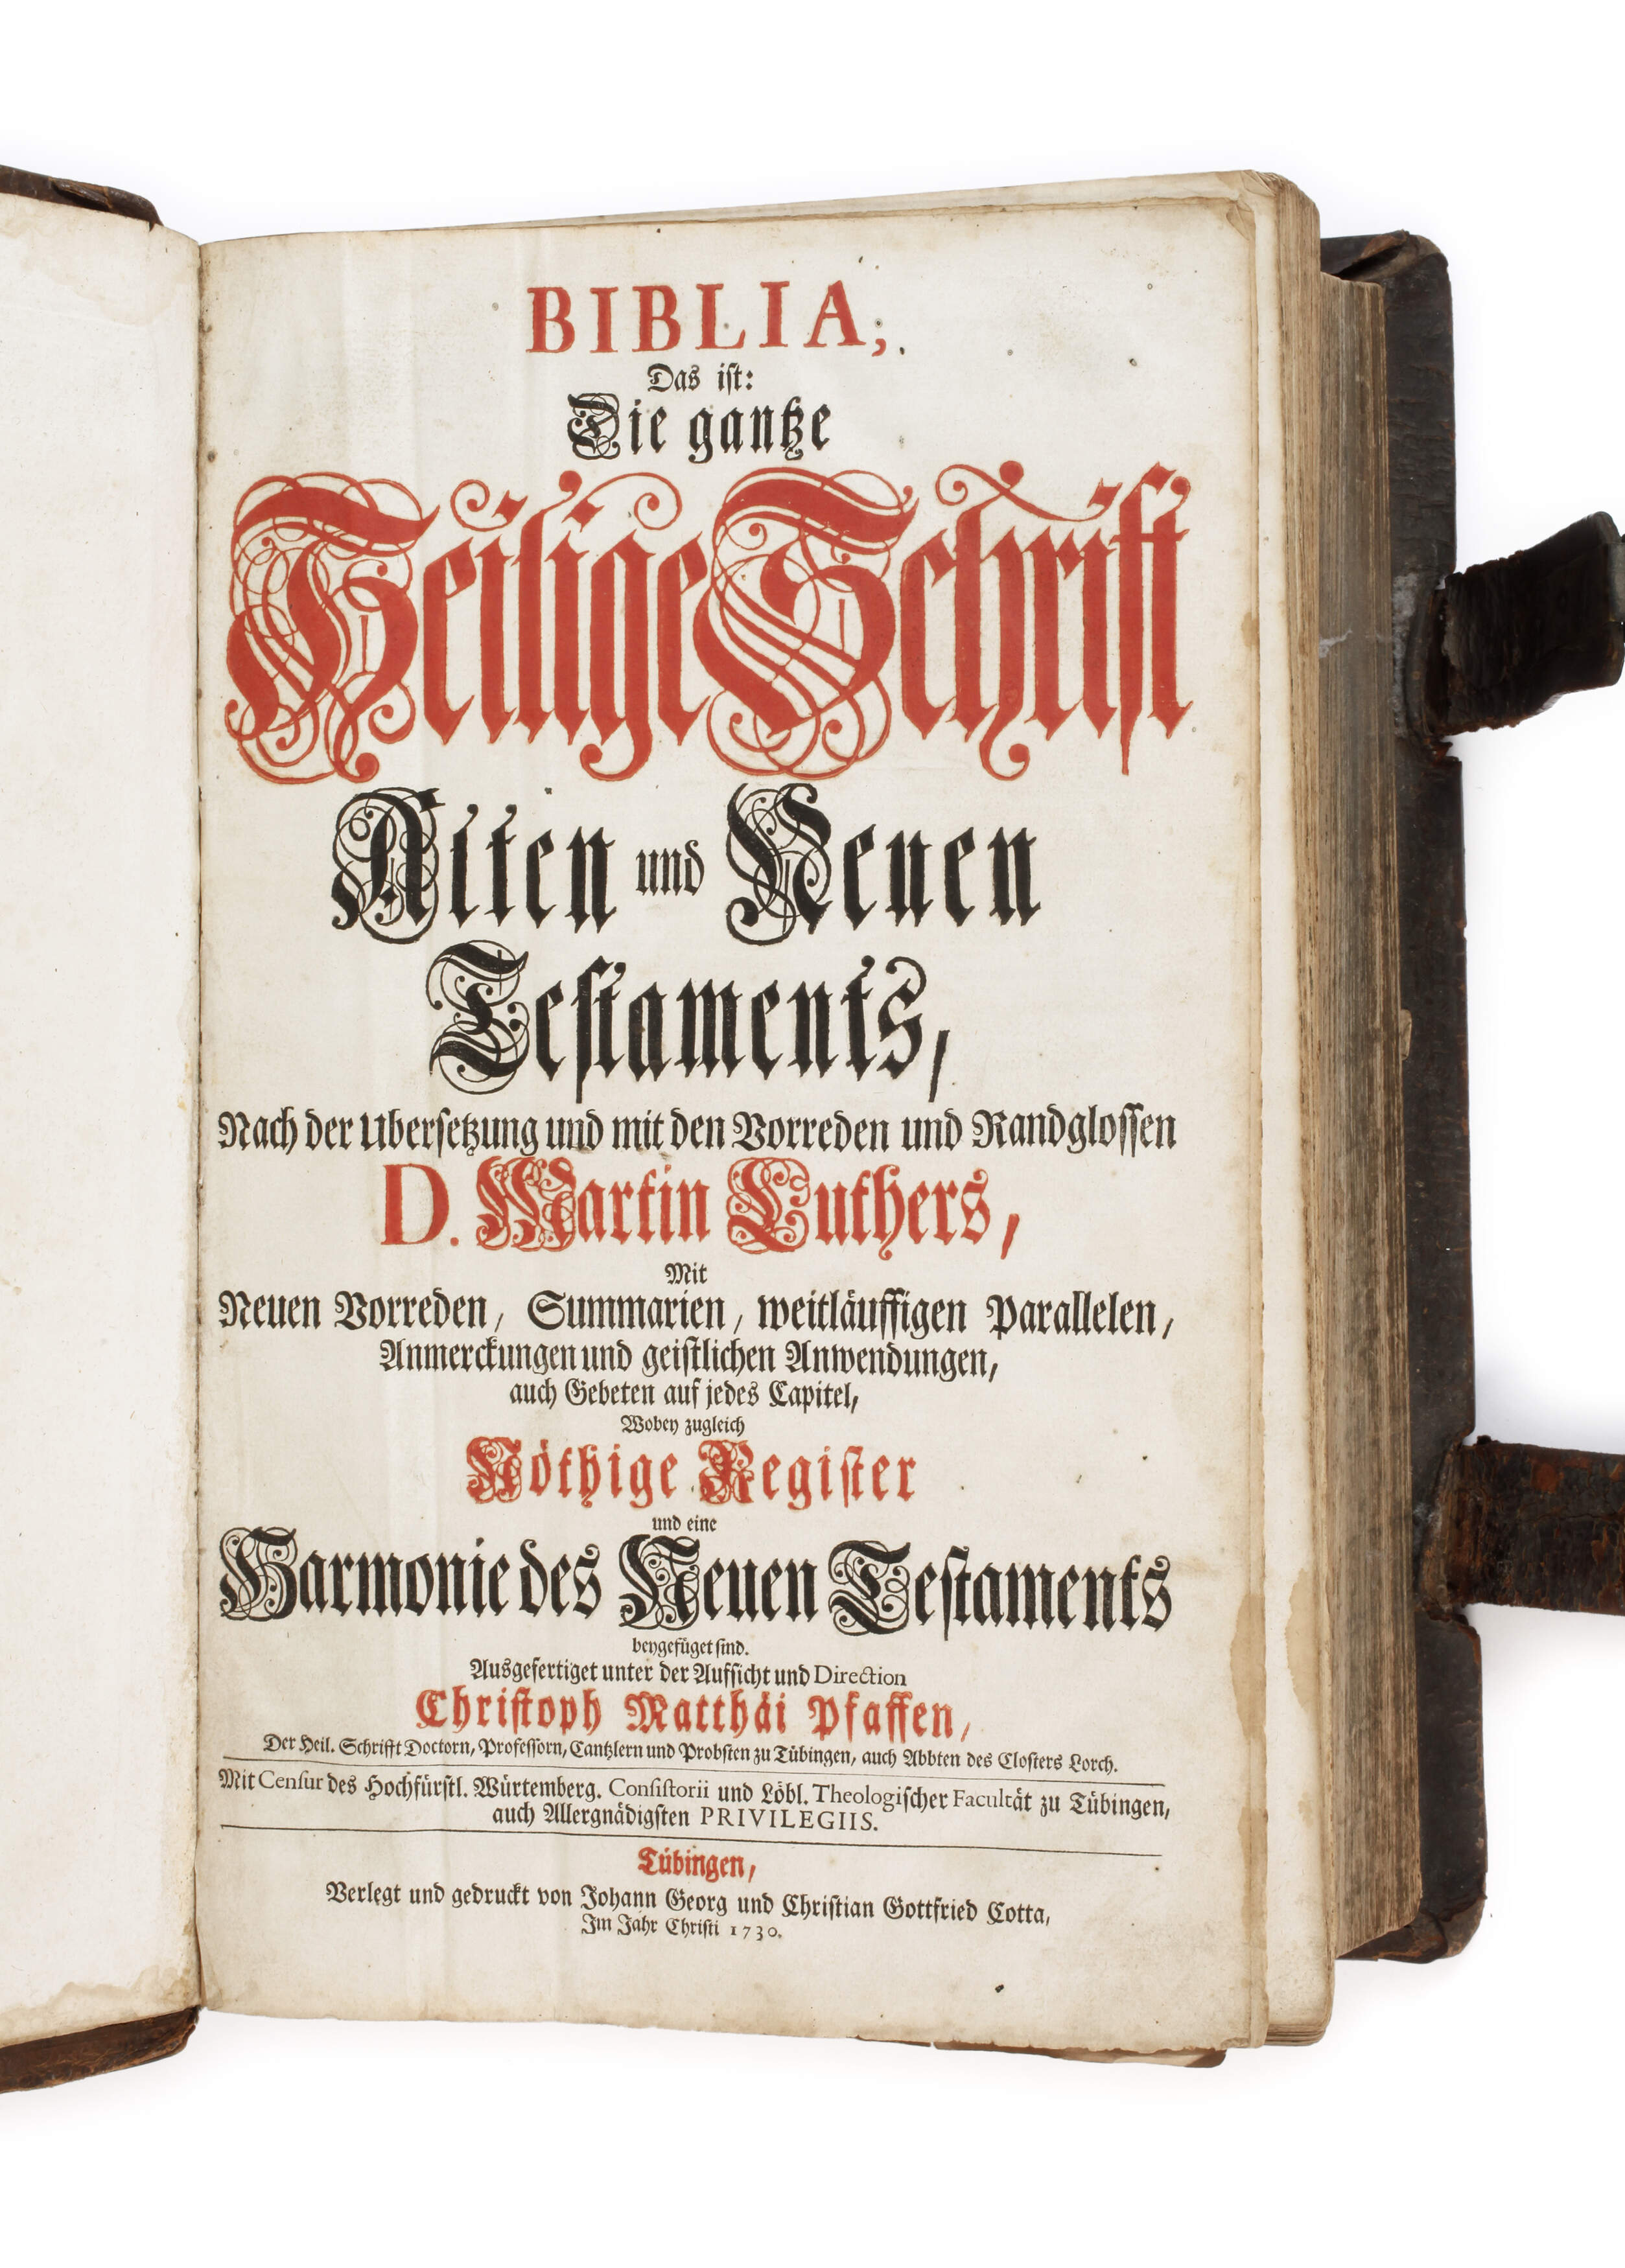 BIBLIA,
Das ist:
Die gantze
Heilige Schrift
Alten und Neuen
Testaments,
Nach der Ubersetzung und mit den Vorreden und Randglossen
D. Martin Luthers,
Mit
Neuen Vorreden, Summarien, weitläuffigen Parallelen,
Anmerckungen und geistlichen Anwendungen,
auch Gebeten auf jedes Capitel,
Wobey zugleich
Nöthige Register
und eine
Harmonie des Neuen Testaments
beygefüget sind.
Ausgefertiget unter der Aufsicht und Direction
Christoph Matthäi Pfaffen,
Der Heil. Schrifft Doctorn, Professorn, Cantzlern und Probsten zu Tübingen, auch Abbten des Closters Lorch.
Mit Censur des Hochfürstl. Würtemberg. Consistorii und Löbl. Theologischer Facultät zu Tübingen,
auch Allergnädigsten PRIVILEGIIS.
Tübingen,
Verlegt und gedruckt von Johann Georg und Christian Gottfried Cotta,
Im Jahr Christi 1730.